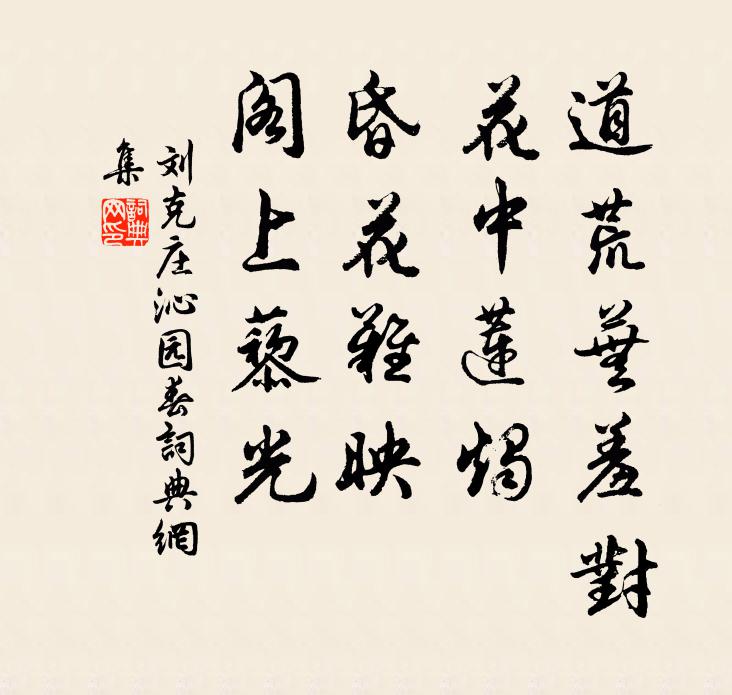 道荒蕪羞對
花中蓮燭
昏花難映
閣上藜光
刘克庄沁园春詞典網
集
詞典網印